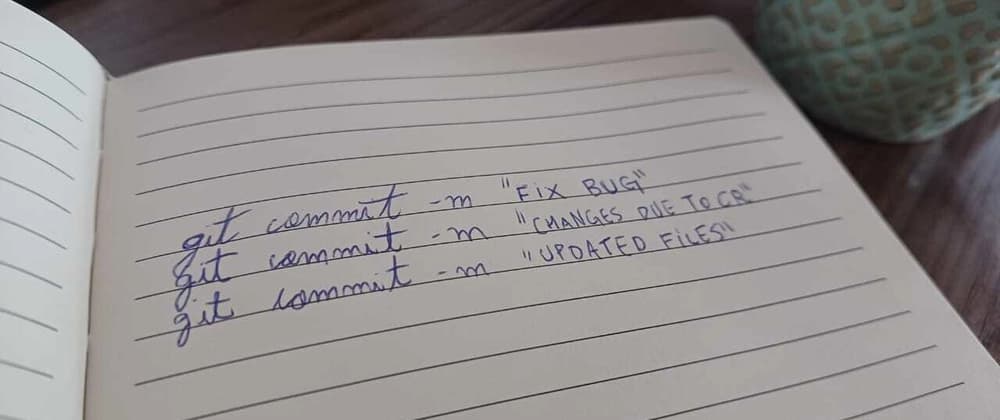 git commit -m "FiX BUG"
git commit -m "CHANGES DUE TO CR"
git commit -m "UPDATED FiLES"